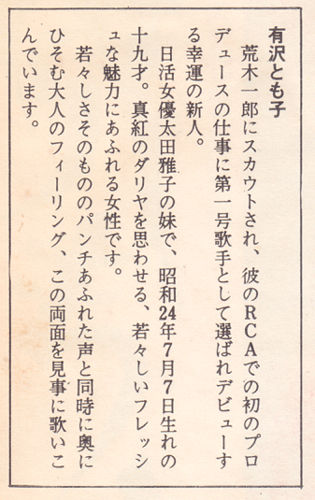 有沢とも子
荒木一郎にスカウトされ、彼のRCAでの初のプロ
デュースの仕事に第一号歌手として選ばれデビューす
る幸運の新人。
日活女優太田雅子の妹で、昭和24年7月7日生れの
十九才。真紅のダリヤを思わせる、若々しいフレッシ
ュな魅力にあふれる女性です。
若々しさそのもののパンチあふれた声と同時に奥に
ひそむ大人のフィーリング、この両面を見事に歌いこ
んでいます。